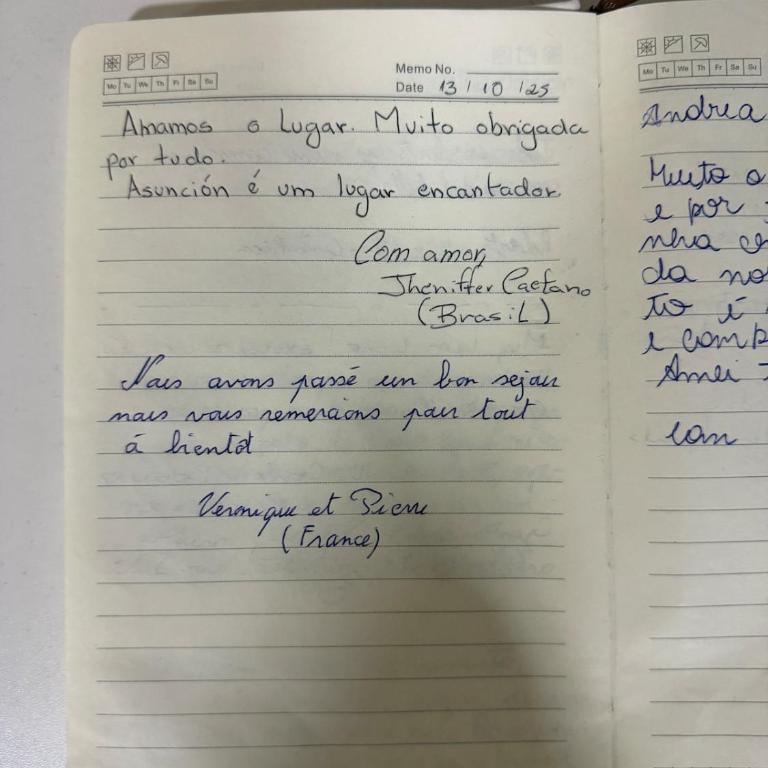 Mo Tu We Th Fr Sa Su
Memo No.
Date 13 / 10 / 25
Amamos o Lugar. Muito obrigada
por tudo.
Asunción é um lugar encantador
Com amor,
Jheniffer Caetano
(Brasil)
Nous avons passé un bon sejour
nous vous remercions pour tout
á bientôt
Veronique et Pierre
(France)
Mo Tu We Th Fr Sa Su
Andrea
Muito o
e por
nha
da no
to é
e comp
Amei